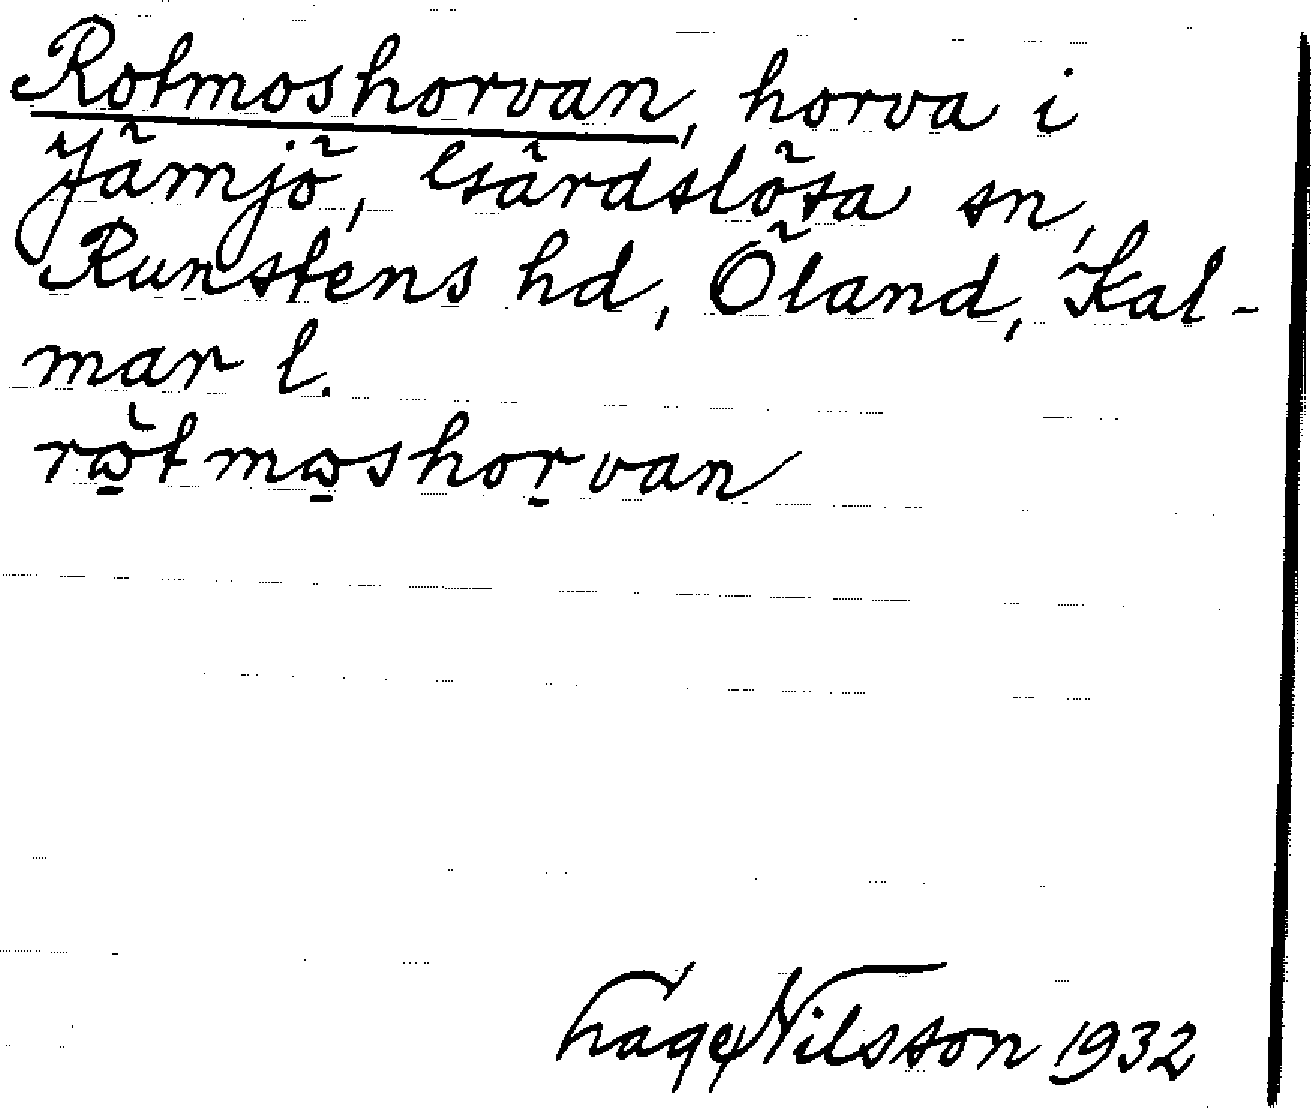 Rotmoshorvan, horva i
Jämjö, Gärdslösa sn,
Runstens hd, Öland, Kal-
mar l.
rὼ̱tmω̱shoṟvan
Nilsson 1932